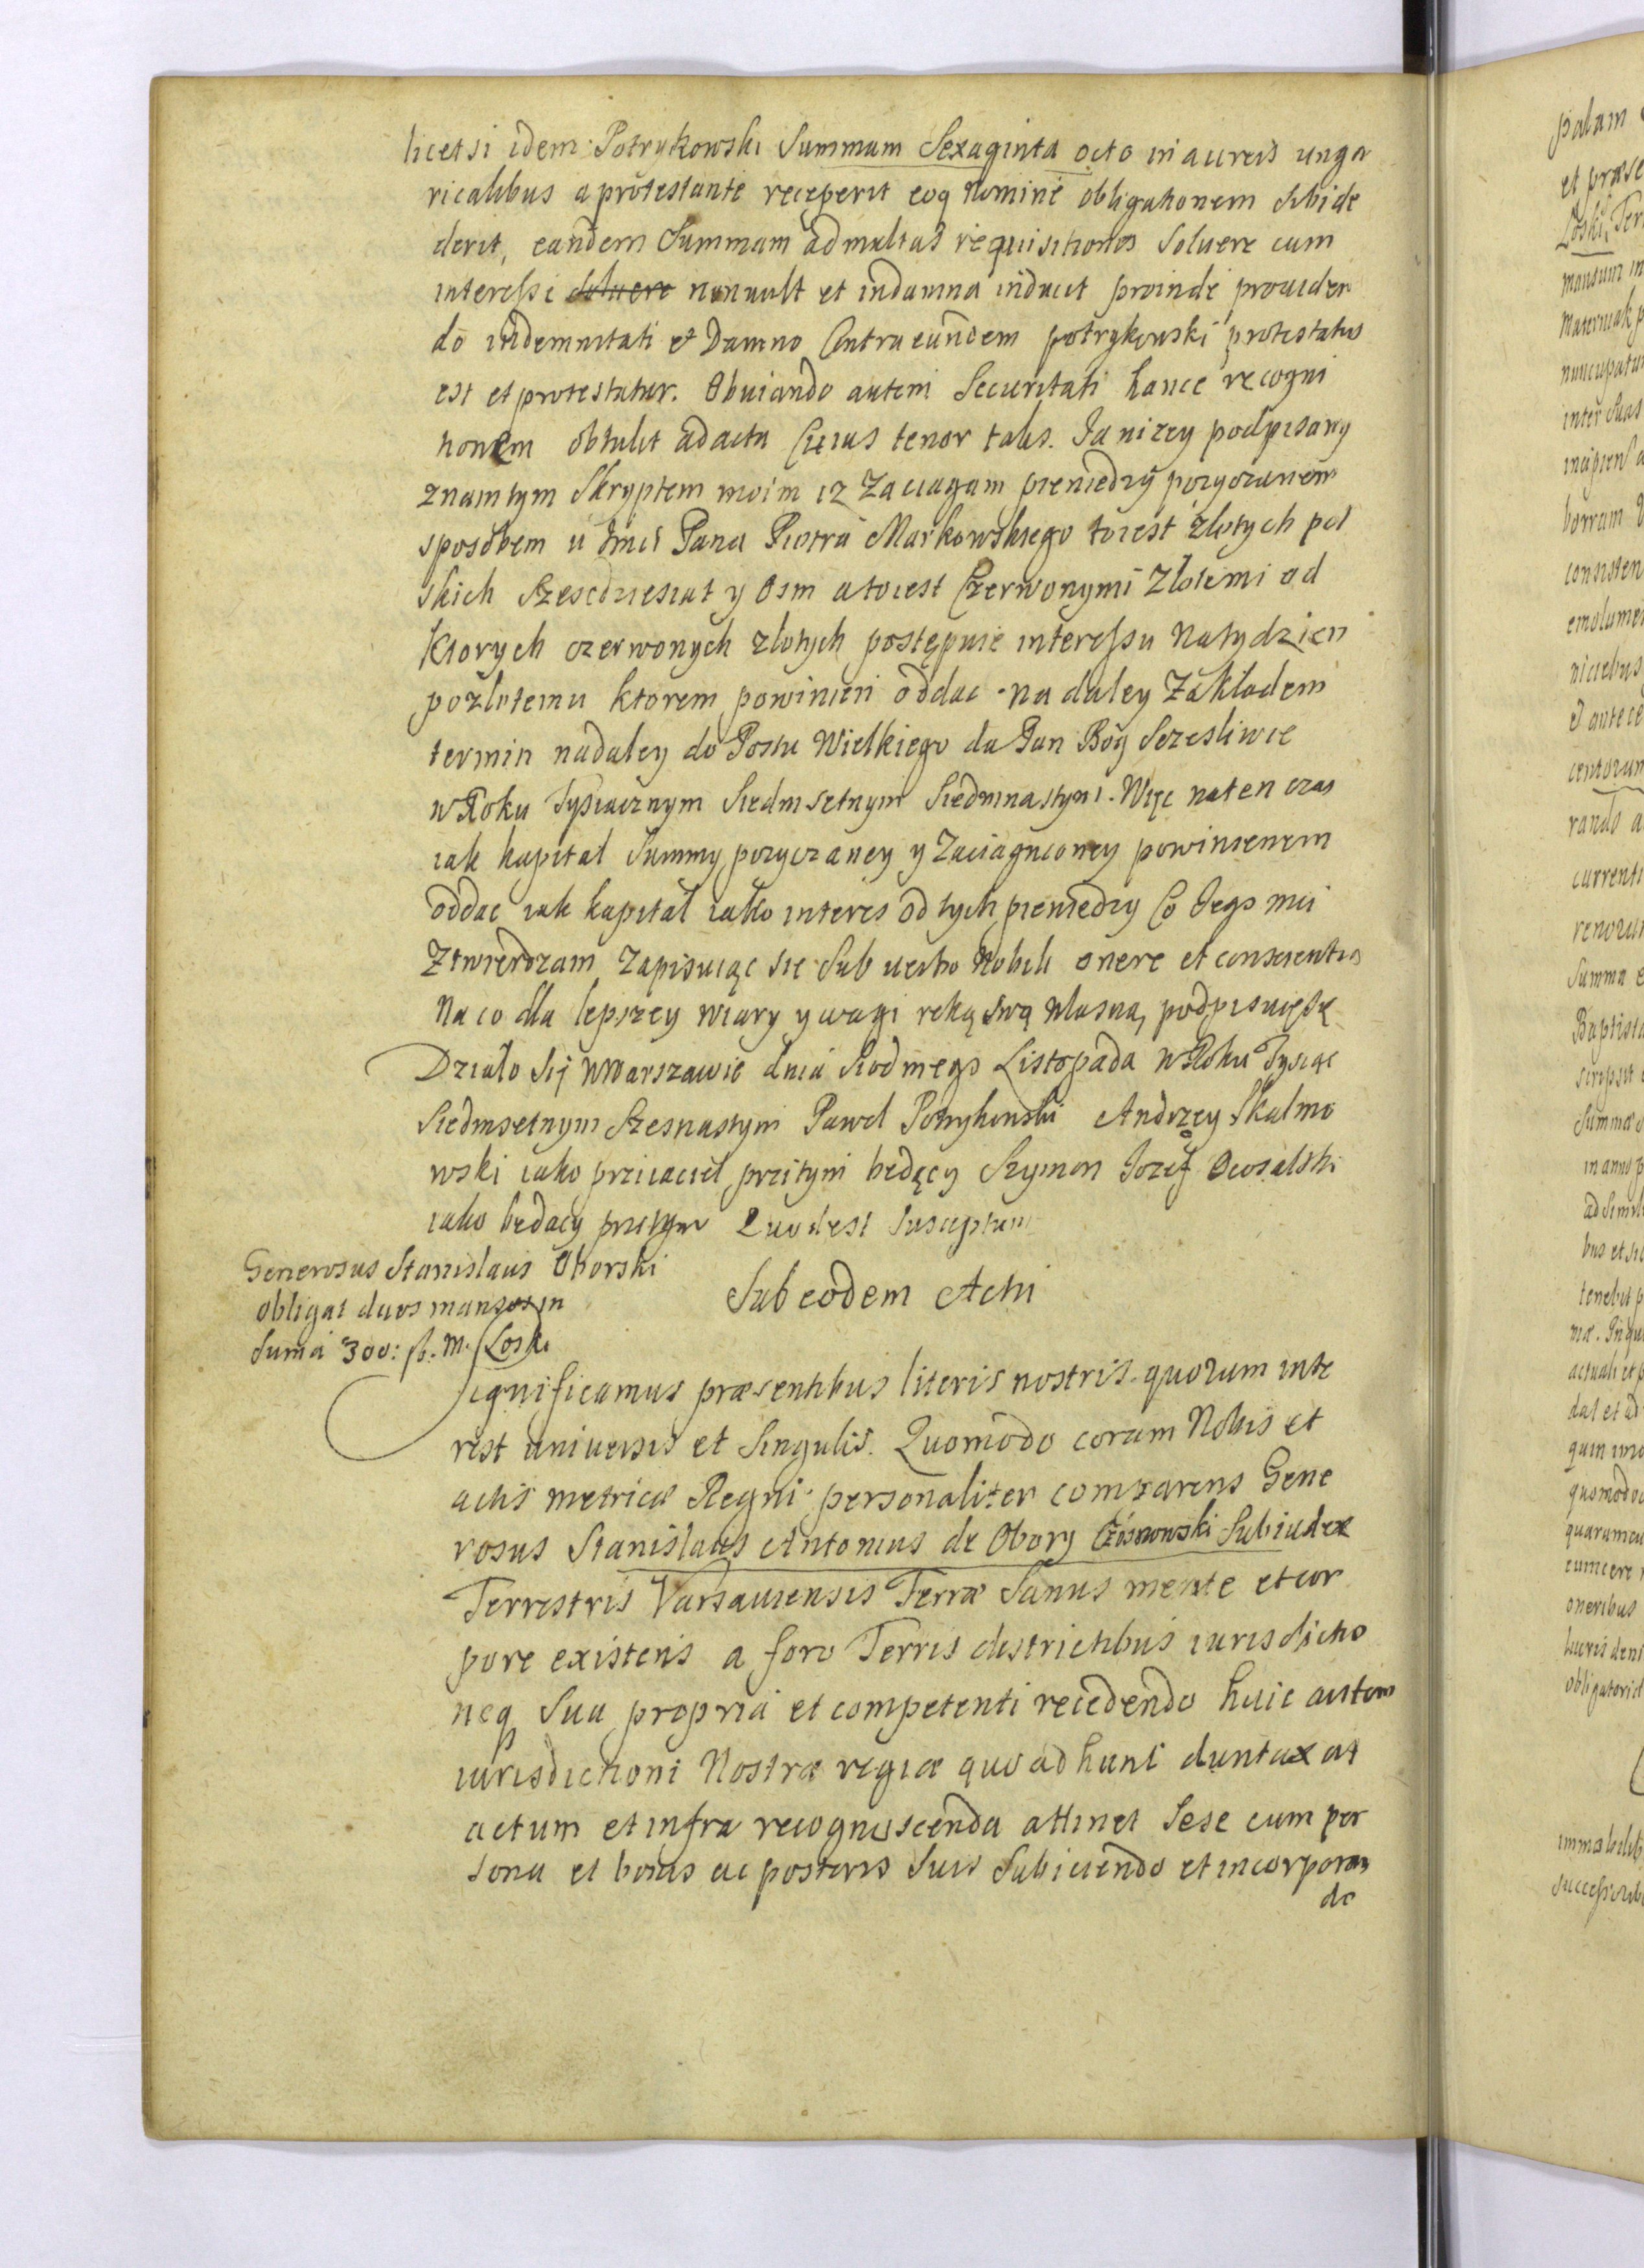 licetsi idem Potrykowski Summam Sexaginta octo in aureis unga
ricalibus a protestante receperit eoq nomine obligationem sibi de
derit, eandem Summam ad multas requisitiones Soluere cum
interesse soluere nonuult et in damna inducit proinde prouiden
do indemnitati et Damno Contra eundem potrykowski protestatus
est et protestatur. Obuiando autem Securitati hance recogni
tionem obtulit ad acta Cuius tenor talis. Ja nizey podpisany
znam tym Skryptem moim iz Zaciągam pieniedzy pozyczanem
sposobem u Jmci Pana Piotra Markowskiego to iest zlotych pol
skich Szescdziesiat y Osm a to iest Czerwonymi Zlotemi od
Ktorych czerwonych zlotych postępuie interessu na tydzien
po zlotemu ktorem powinien oddac na daley Zakladem
termin nadaley do Postu Wielkiego da Pan Bóg Sczesliwie
w Roku Tysiacznym Siedmsetnym Siedmnastym. Więc na ten czas
iak kapital Summy pozyczaney y Zaciągnioney powinienem
oddac iak kapital iako interes od tych pieniedzy Co Jego mci
Ztwierdzam Zapisuiąc sie Sub uerbo Nobili onere et conscientia
Na co dla lepszey wiary y wagi ręką swą wlasną podpisuię Sę
Dzialo Się w Warszawie dnia Siodmego Listopada w Roku Tysiąc
Siedmsetnym Szesnastym Pawel Potrykowski Andrzey Skalmo
wski iako przyiaciel przitym będący Szymon Jozef Ocosalski
iako bedący przitym Quod est Susceptum
Generosus Stanislaus Oborski
obligat duos mansos in
Suma 300: fl. M. Loski
Sub eodem Actu
Significamus præsentibus literis nostris quorum inte
rest uniuersis et Singulis. Quomodo coram Nobis et
actis metricæ Regni personaliter comparens Gene
rosus Stanislaus Antonius de Obory Czosnowski Subiudex
Terrestris Varsauiensis Terræ Sanus mente et cor
pore existens a foro Terris districtibus iurisdictio
neq Sua propria et competenti recedendo huic autem
iurisdictioni Nostræ regiæ quo ad hunc duntaxat
actum et infra recognoscenda attinet Sese cum per
sona et bonis ac posteris Suis Subiiciendo et incorporan
do